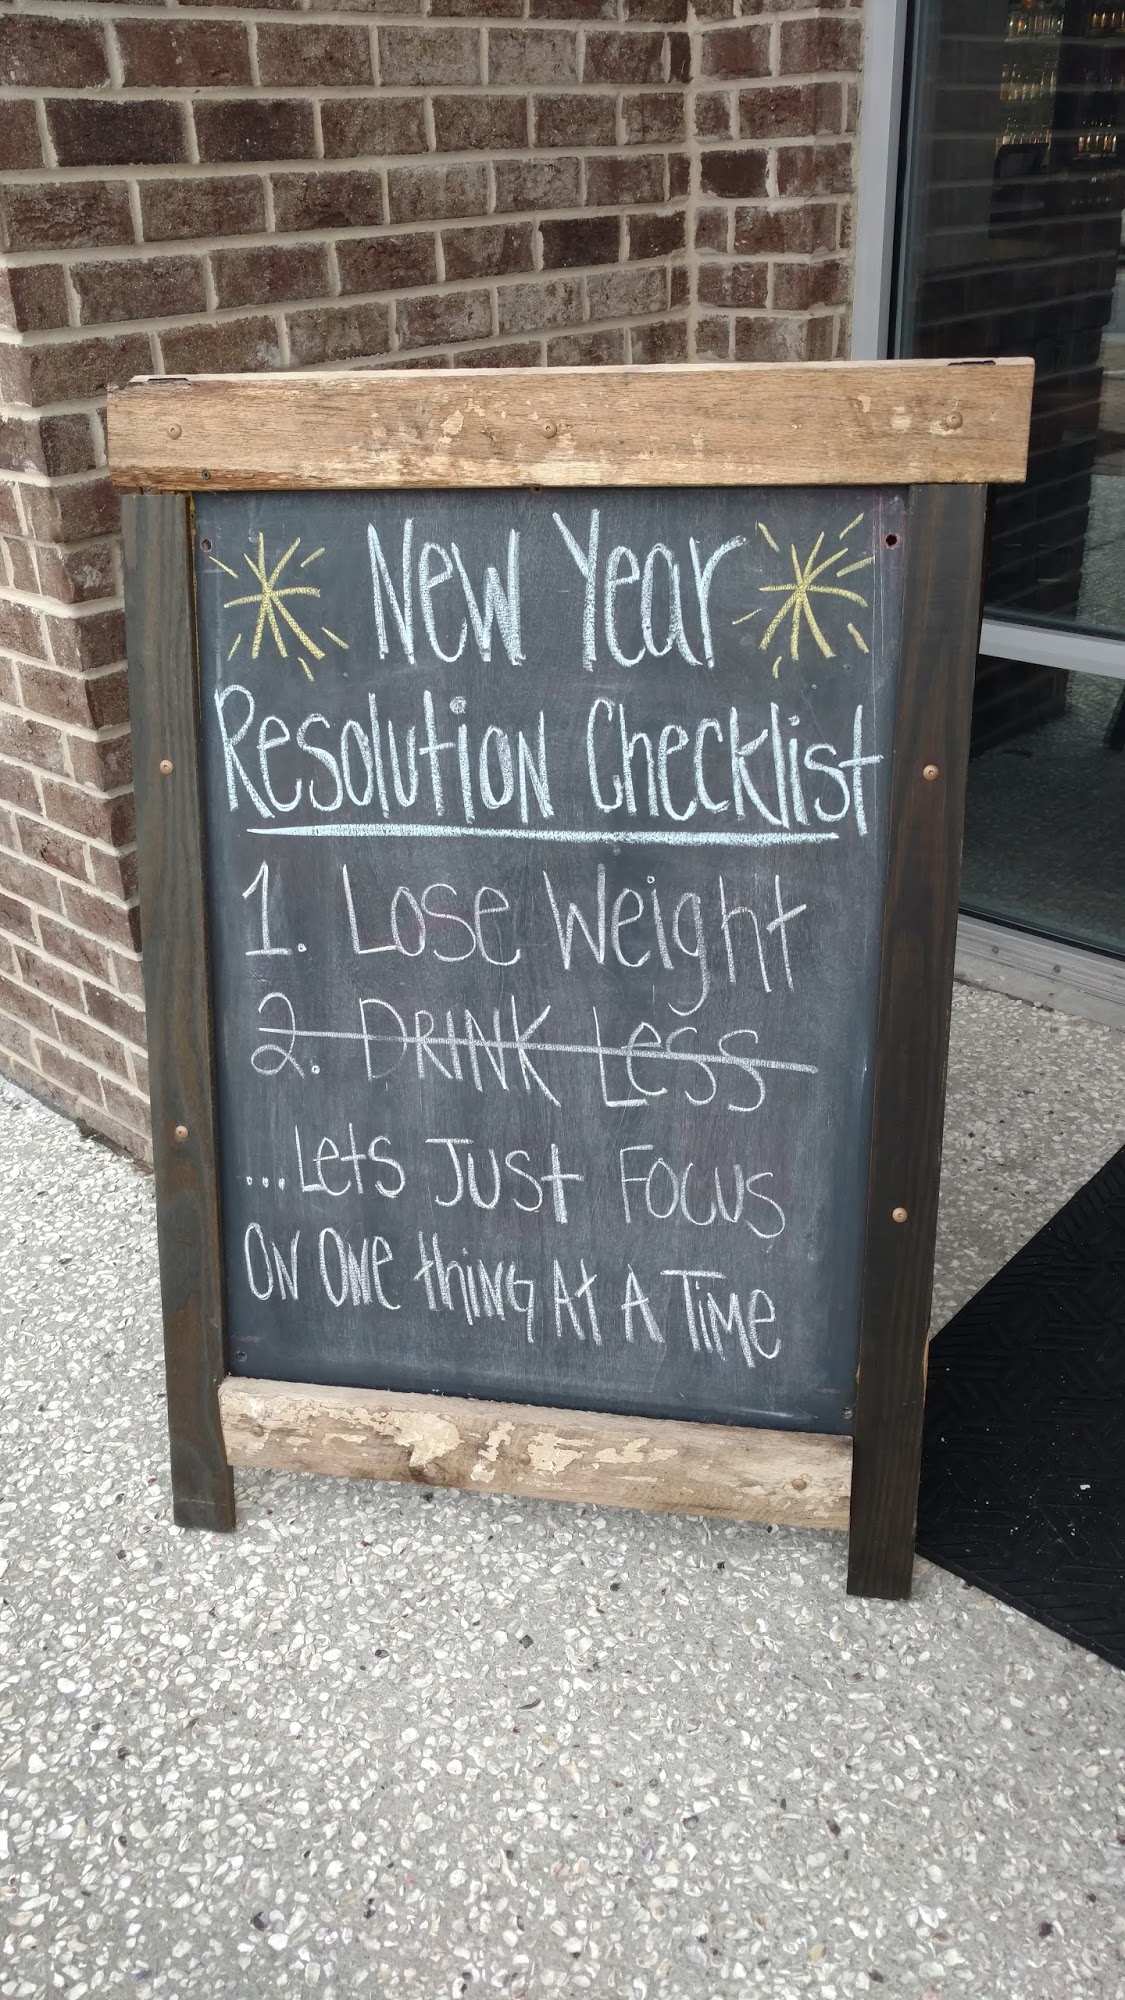 New Year
Resolution Checklist
1. Lose Weight
2. DRINK Less
...Lets Just Focus
ON ONe thiNg At A Time